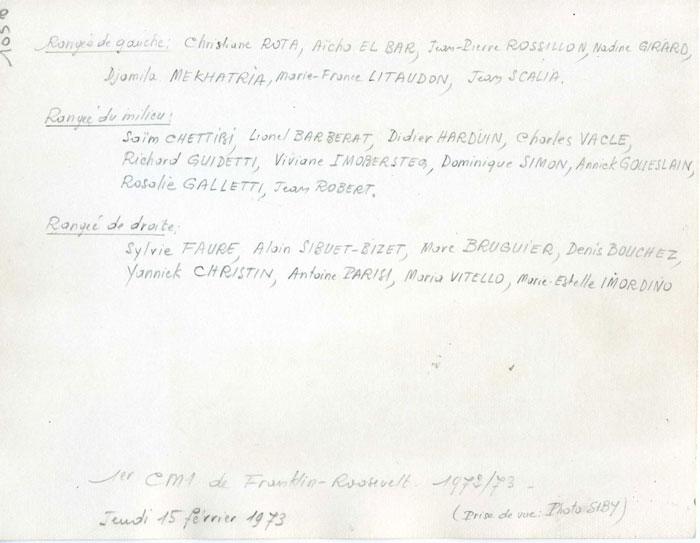 1058
Rangée de gauche: Christiane ROTA, Aïcha EL BAR, Jean-Pierre ROSSILLON, Nadine GIRARD,
Djamila MEKHATRIA, Marie-France LITAUDON, Jean SCALIA.
Rangée du milieu:
Saïm CHETTIBI, Lionel BARBERAT, Didier HARDUIN, Charles VACLE,
Richard GUIDETTI, Viviane IMOBERSTEG, Dominique SIMON, Annick GOUESLAIN,
Rosalie GALLETTI, Jean ROBERT.
Rangée de droite:
Sylvie FAURE, Alain SIBUET-BIZET, Marc BRUGUIER, Denis BOUCHEZ,
Yannick CHRISTIN, Antoine PARISI, Maria VITELLO, Marie-Estelle IMORDINO
1er CM1 de Franklin-Roosevelt. 1972/73 -
Jeudi 15 février 1973 (Prise de vue: Photo SIBY)